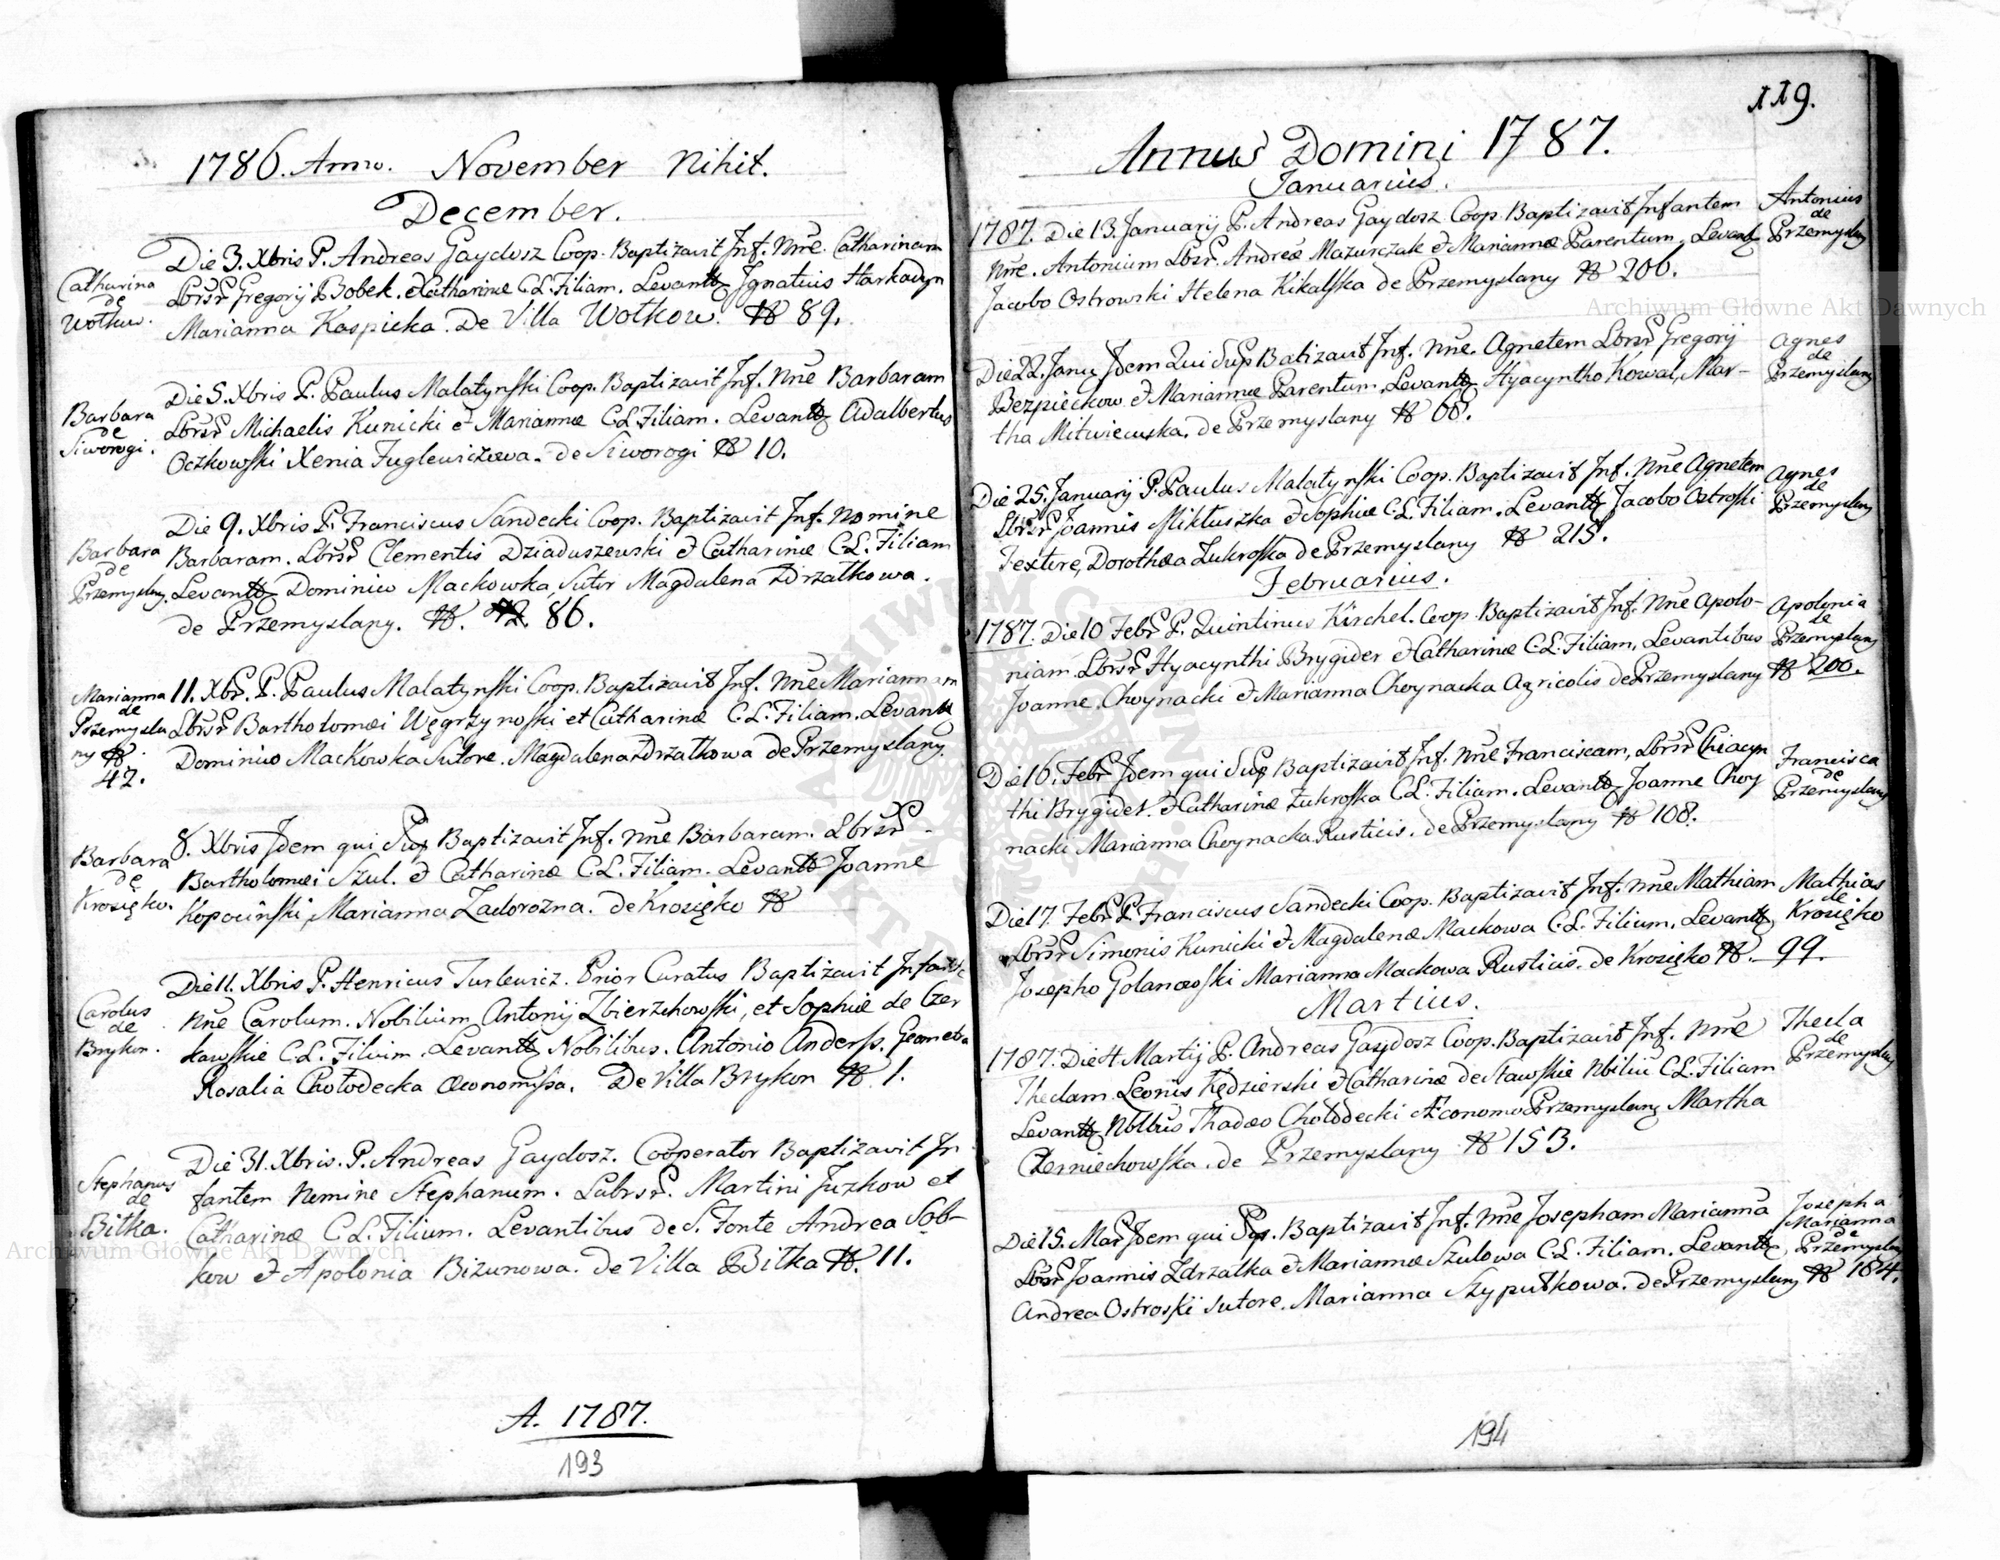 1786. Anno. November Nihil.
December.
Catharina
de
Wołkow.
Die 3. Xbris P. Andreas Gaydosz Coop. Baptizavit Inf. Nne. Catharinam
Lbrsr Gregorij Bobek. et Catharinæ C.L. Filiam. Levantb Ignatius
Marianna Kaspicka. De Villa Wołkow. N 89.
Barbara
de
Siworogi.
Die 5. Xbris P. Paulus Malatynski Coop. Baptizavit Inf. Nne Barbaram
Lbrsr Michaelis Kunicki et Mariannæ C.L. Filiam. Levantb Adalbertus
Oczkowski Xenia Fuglewiczowa. de Siworogi N 10.
Barbara
de
Przemyslany.
Die 9. Xbris P. Franciscus Sandecki Coop. Baptizavit Inf. Nomine
Barbaram. Lbrsr Clementis Dziaduszewski et Catharinæ C.L. Filiam
Levantb Dominico Mackowka, Sutor Magdalena Zdrzałkowa.
de Przemyslany. N. 86.
Marianna
de
Przemysla
ny N.
42.
11. Xbr. P. Paulus Malatynski Coop. Baptizavit Inf. Nne Mariannam
Lbrsr Bartholomæi Węgrzynoski et Catharinæ C.L. Filiam. Levantb
Dominico Mackowka Sutore. Magdalena Zdrzałkowa de Przemyslany.
Barbara
de
Krosięko.
8. Xbris Idem qui Sup Baptizavit Inf. Nne Barbaram. Lbrsr
Bartholomæi Szul. et Catharinæ C.L. Filiam. Levantb Joanne
Kopociński, Marianna Zadorozna. de Krosięko N
Carolus
de
Brykon.
Die 11. Xbris P. Henricus Turlewicz. Prior Curatus Baptizavit Infant
Nne Carolum. Nobilium Antonij Zbierzchowski, et Sophiæ de Czer
kawskie C.L. Filium. Levantb Nobilibus. Antonio Anders. Geometra
Rosalia Chołodecka Œconomissa. De Villa Brykon N 1.
Stephanus
de
Bitka.
Die 31. Xbris. P. Andreas Gaydosz. Cooperator Baptizavit In
fantem Nomine Stephanum. Labrsr. Martini Juzkow et
Catharinæ C.L. Filium. Levantibus de S. Fonte Andrea Sob-
kow et Apolonia Bizunowa. de Villa Bitka N. 11.
A. 1787.
193
119.
Annus Domini 1787.
Januarius.
1787. Die 13. Januarij P. Andreas Gaydosz Coop. Baptizavit Infantem
Nne. Antonium Lbsr. Andreæ Mazurczak et Mariannæ Parentum, Levantb
Jacobo Ostrowski Helena Kikalska de Przemyslany N 206.
Antonius
de
Przemyslany
Die 22. Janu Idem Qui Sup Batizavit Inf. Nne. Agnetem Lbrsr Gregorij
Bezpieckow et Mariannæ Parentum. Levantb Hyacyntho Kowal, Mar-
tha Mitwiewska. de Przemyslany N 68.
Agnes
de
Przemyslany
Die 25. Januarij P. Paulus Malatynski Coop. Baptizavit Inf. Nne Agnetem
Lbrsr Joannis Miktuszka et Sophiæ C.L. Filiam. Levantb Jacobo Ostroski
Textore, Dorothæa Zukroska de Przemyslany N 215.
Agnes
de
Przemyslany
Februarius.
1787. Die 10 Febr P. Quintinus Kirchel. Coop. Baptizavit Inf. Nne Apolo-
niam. Lbrsr Hyacynthi Brygider et Catharinæ C.L. Filiam, Levantibus
Joanne. Choynacki et Marianna Choynacka Agricolis de Przemyslany N 200.
Apolonia
de
Przemyslany
Die 16. Febr Idem qui Sup Baptizavit Inf. Nne Franciscam, Lbrsr Chiacyn
thi Brygider. et Catharinæ Zukroska C.L. Filiam. Levantb Joanne Choy
nacki Marianna Choynacka Rusticis. de Przemyslany N 108.
Francisca
de
Przemyslany
Die 17. Febr P. Franciscus Sandecki Coop. Baptizavit Inf. Nne Mathiam
Lbrsr Simonis Kunicki et Magdalenæ Mackowa C.L. Filium. Levantb
Josepho Golanowski Marianna Mackowa Rusticis. de Krosięko N. 99.
Mathias
de
Krosięko
Martius.
1787. Die 4 Martij P. Andreas Gaydosz Coop. Baptizavit Inf. Nne
Theclam. Leonis Kędzierski et Catharinæ de Stawskie Nbiliu C.L. Filiam
Levantb Nbllbus Thadæo Chołodecki Æconomo Przemyslany Martha
Czerniechowska. de Przemyslany N 153.
Thecla
de
Przemyslany
Die 15. Mar Idem qui Sup. Baptizavit Inf. Nne Josepham Marianna
Lbsr Joannis Zdrzalka et Mariannæ Szulowa C.L. Filiam. Levantb,
Andrea Ostroski Sutore. Marianna Szyputkowa. de Przemyslany N 164.
Josepha
Marianna
de
Przemyslany
194
Archiwum Główne Akt Dawnych
Archiwum Główne Akt Dawnych